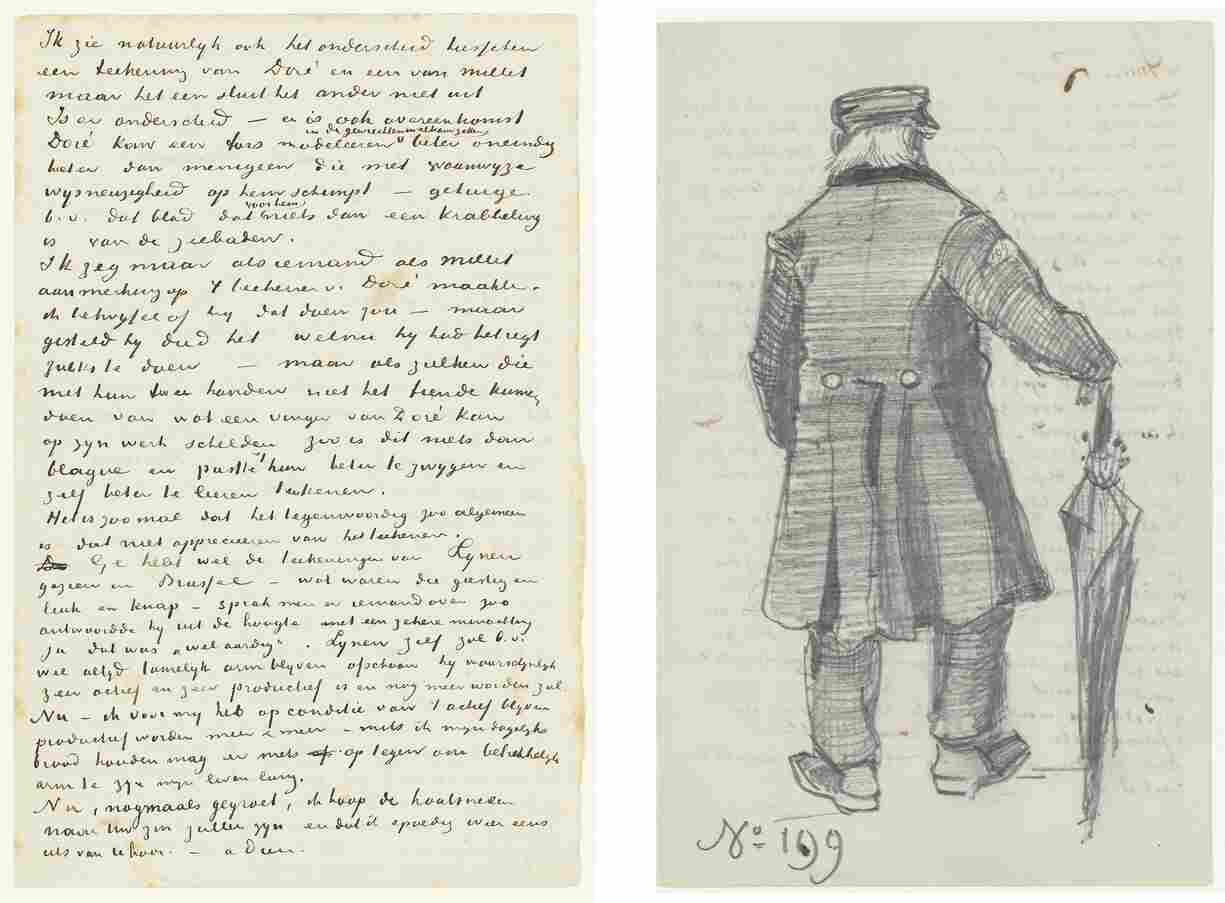 Ik zie natuurlijk ook het onderscheid tusschen
een teekening van Doré en een van Millet
maar het een sluit het ander niet uit
Is er onderscheid – er is ook overeenkomst
Doré kan een tors modeleeren
en de gewrichten in elkaar zetten
beter oneindig
beter dan menigeen die met waanwyze
wysneuzigheid op hem schimpt – getuige
b.v. dat blad dat
voor hem
niets dan een krabbeling
is van de zeebaden.
Ik zeg maar als iemand als Millet
aanmerking op 't teekenen v. Doré maakte.
ik betwyfel of hy dat doen zou – maar
gesteld hy deed het welnu hy had het regt
zulks te doen – maar als zulken die
met hun twee handen niet het tiende kunnen
doen van wat een vinger van Doré kan
op zyn werk schelden zoo is dit niets dan
blague en paste 't hun beter te zwygen en
zelf beter te leeren teekenen.
Het is zoo mal dat het tegenwoordig zoo algemeen
is dat niet apprecieeren van het teekenen.
Ge hebt wel de teekeningen van Lynen
gezien in Brussel – wat waren die geestig en
leuk en knap – sprak men er iemand over zoo
antwoordde hy uit de hoogte met een zekere minachting
ja dat was „wel aardig". Lynen zelf zal b.v.
wel altyd tamelyk arm blyven ofschoon hy waarschynlyk
zeer actief en zeer productief is en nog meer worden zal
Nu – ik voor my heb op conditie van 't actief blyven
productief worden meer & meer – mits ik myn dagelyks
brood houden mag er niets op tegen om betrekkelyk
arm te zyn myn leven lang.
Nu, nogmaals gegroet, ik hoop de houtsneden
naar Uw zin zullen zyn en dat ik spoedig weer eens
iets van U hoor. – a Dieu.
No 199